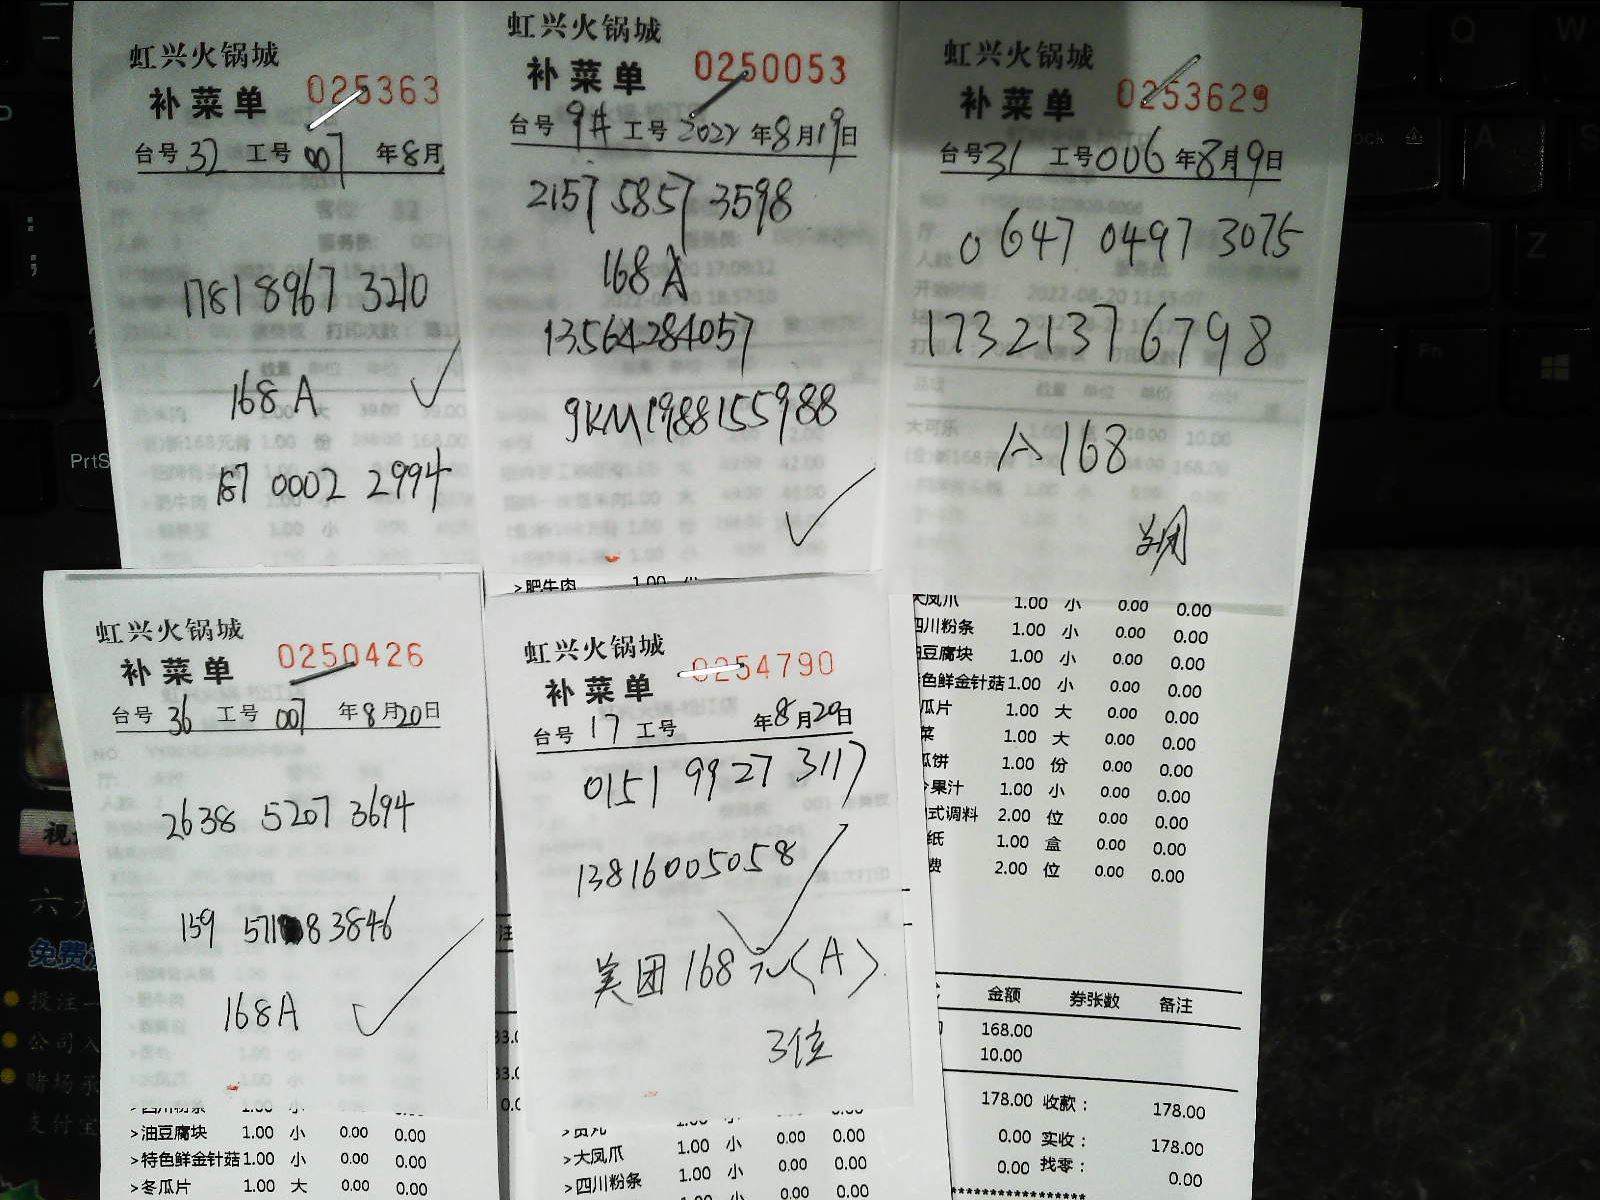 虹兴火锅城
补菜单 025363
台号 32 工号 007 年8月
1781 8967 3210
168A
187 0002 2994
虹兴火锅城
补菜单 0250053
台号 9# 工号 2022 年8月19日
2157 5857 3598
168A
13564284057
9KM1988155988
>肥牛肉 1.00 小
虹兴火锅城
补菜单 0253629
台号 31 工号 006 年8月9日
0647 0497 3075
17321376798
A168
大凤爪 1.00 小 0.00 0.00
四川粉条 1.00 小 0.00 0.00
油豆腐块 1.00 小 0.00 0.00
特色鲜金针菇 1.00 小 0.00 0.00
瓜片 1.00 大 0.00 0.00
菜 1.00 大 0.00 0.00
瓜饼 1.00 份 0.00 0.00
果汁 1.00 小 0.00 0.00
式调料 2.00 位 0.00 0.00
纸 1.00 盒 0.00 0.00
费 2.00 位 0.00 0.00
金额 券张数 备注
168.00
10.00
178.00 收款： 178.00
0.00 实收： 178.00
0.00 找零： 0.00
虹兴火锅城
补菜单 0250426
台号 36 工号 007 年8月20日
2638 5207 3694
159 571 83846
168A
四川粉条 1.00 小 0.00 0.00
>油豆腐块 1.00 小 0.00 0.00
>特色鲜金针菇 1.00 小 0.00 0.00
>冬瓜片 1.00 大 0.00 0.00
虹兴火锅城
补菜单 0254790
台号 17 工号 年8月20日
0151 9927 3117
13816005058
美团168元(A)
3位
>贡丸 1.00 小 0.00 0.00
>大凤爪 1.00 小 0.00 0.00
>四川粉条 1.00 小 0.00 0.00
PrtS
Fn
Q
W
A
S
Z